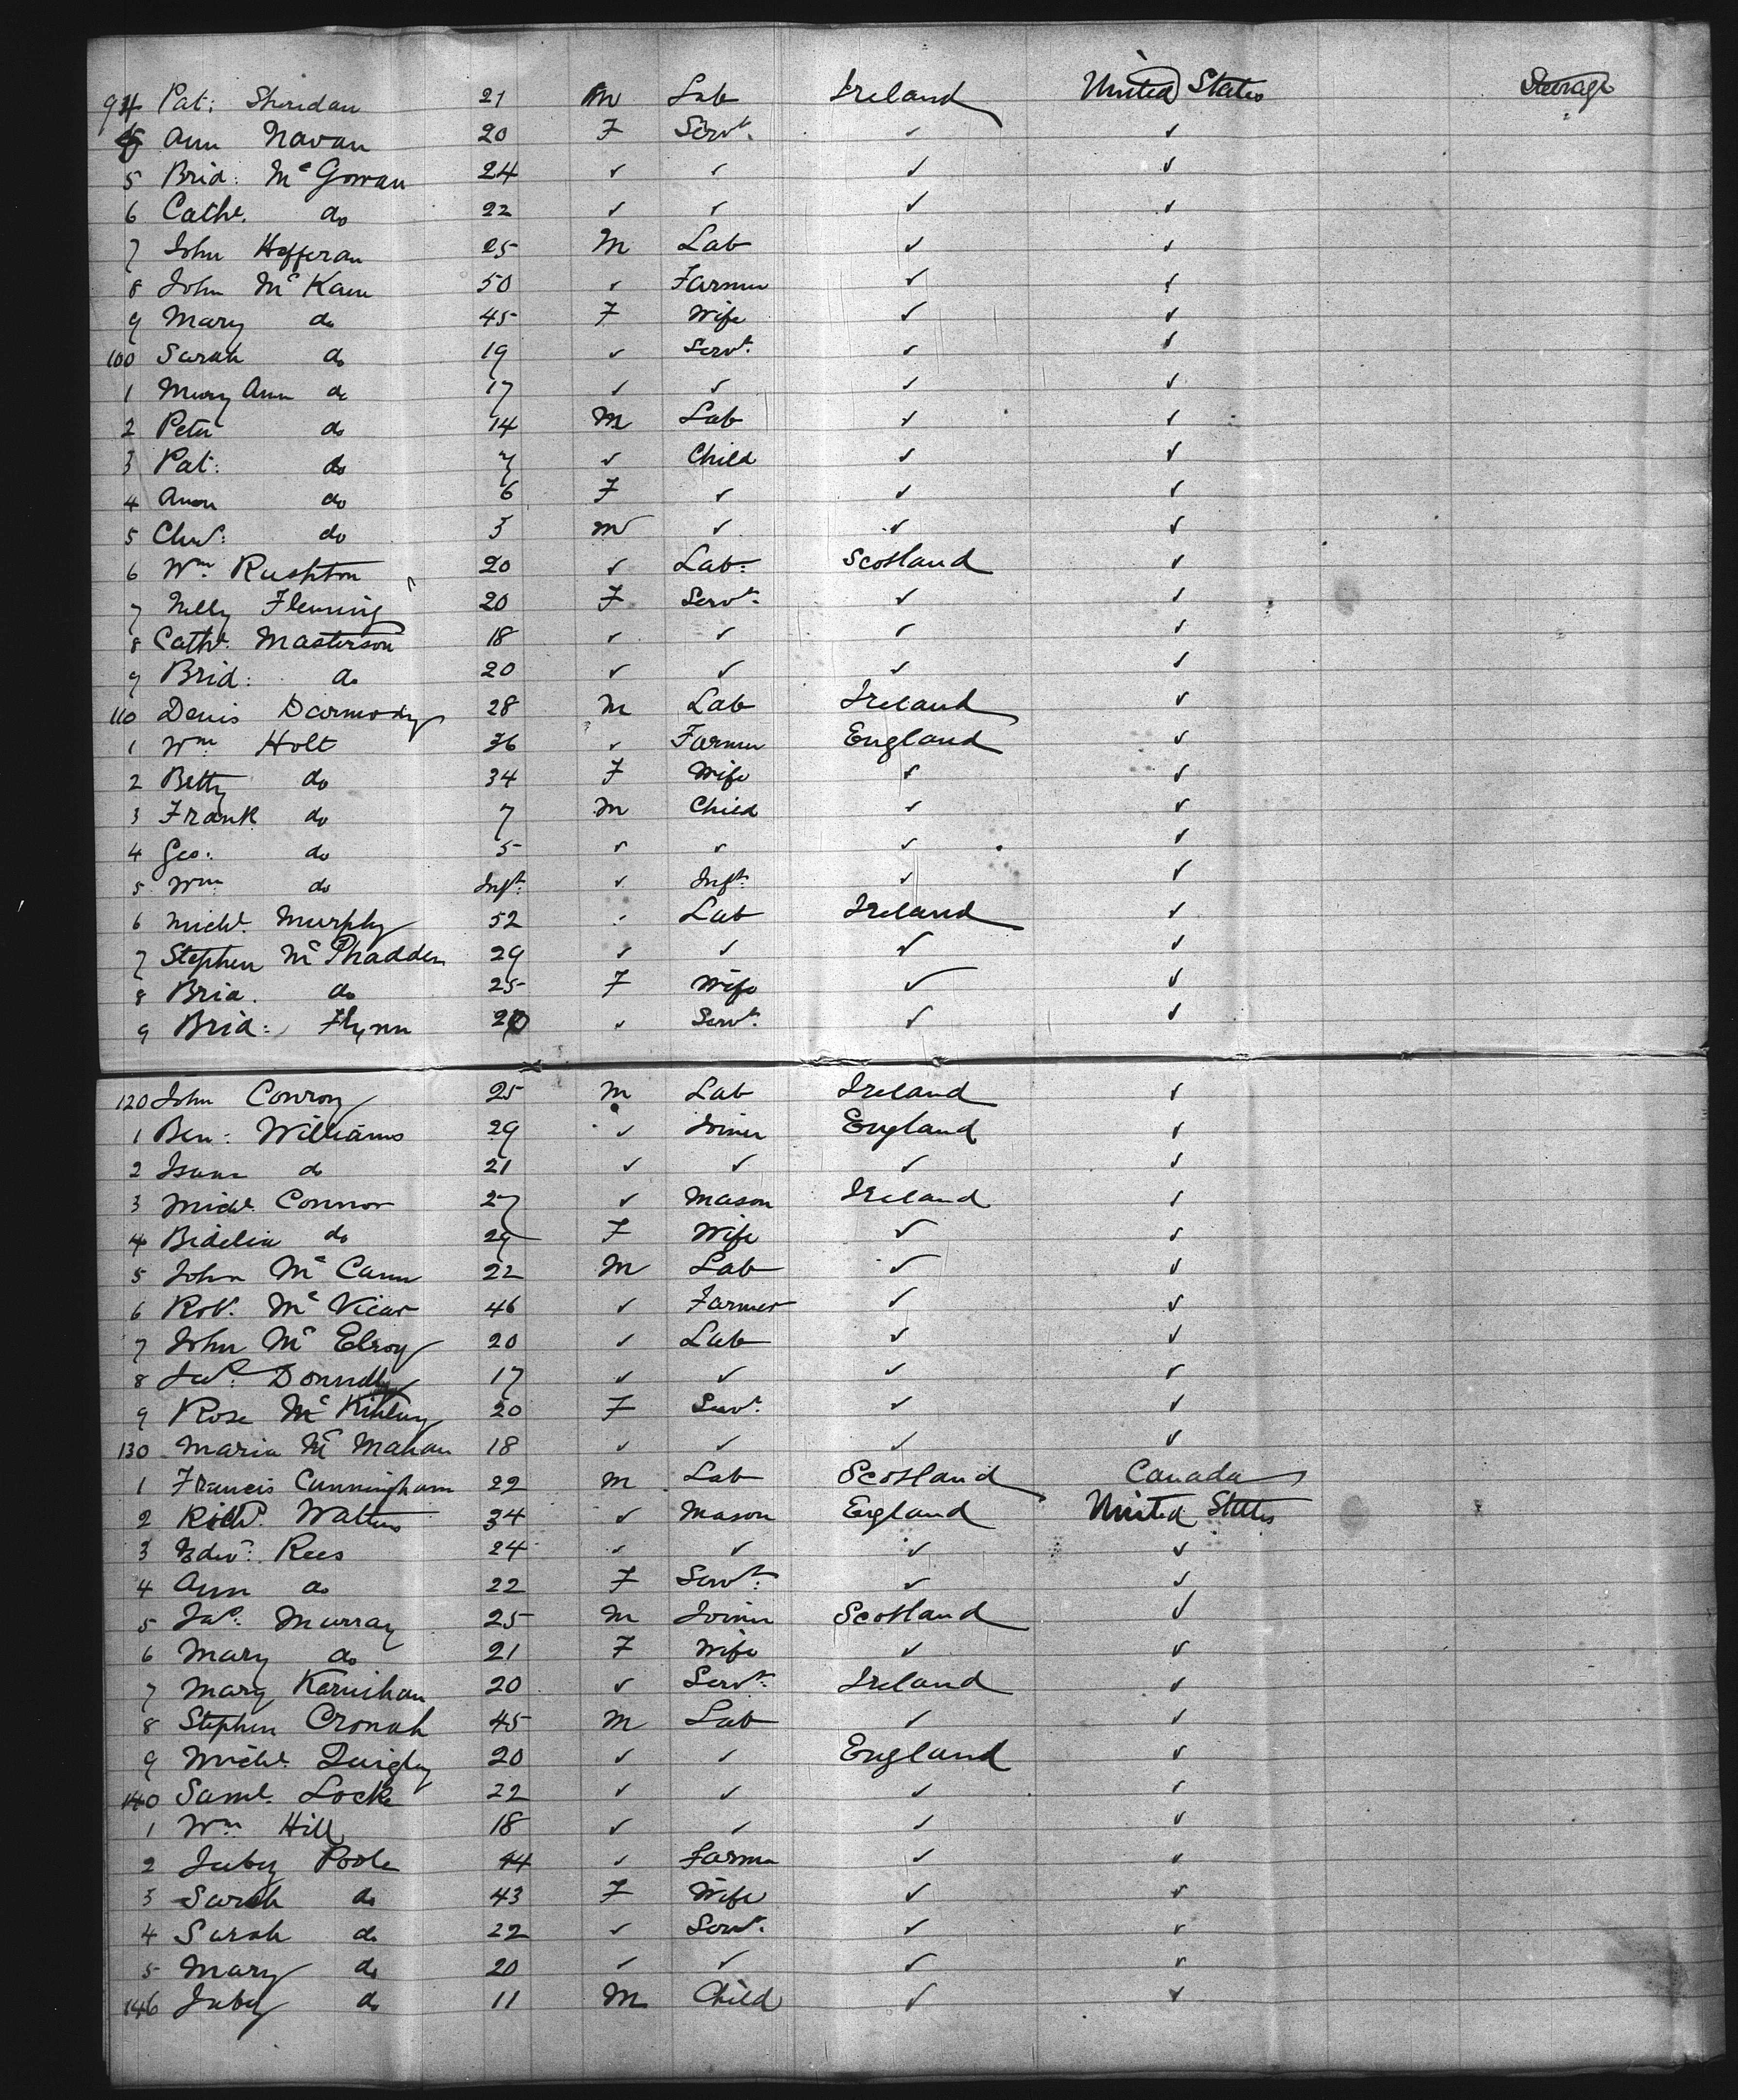 94 Pat: Sheridan 21 M Lab Ireland United States Steerage
Ann Navan 20 F Servt. ✓ ✓
5 Brid: McGowan 24 ✓ ✓ ✓ ✓
6 Cathe. do 22 ✓ ✓ ✓ ✓
7 John Hefferan 25 M Lab ✓ ✓
8 John McKane 50 ✓ Farmer ✓ ✓
9 Mary do 45 F Wife ✓ ✓
100 Sarah do 19 ✓ Servt. ✓ ✓
1 Mary Ann do 17 ✓ ✓ ✓ ✓
2 Peter do 14 M Lab ✓ ✓
3 Pat: do 7 ✓ Child ✓ ✓
4 Ann do 6 F ✓ ✓ ✓
5 Chas: do 3 M ✓ ✓ ✓
6 Wm. Rushton 20 ✓ Lab: Scotland ✓
7 Nelly Fleming 20 F Servt. ✓ ✓
8 Cathe. Masterson 18 ✓ ✓ ✓ ✓
9 Brid: do 20 ✓ ✓ ✓ ✓
110 Denis Darmody 28 M Lab Ireland ✓
1 Wm Holt 36 ✓ Farmer England ✓
2 Betty do 34 F Wife ✓ ✓
3 Frank do 7 M Child ✓ ✓
4 Geo: do 5 ✓ ✓ ✓ ✓
5 Wm do Inft. ✓ Inft. ✓ ✓
6 Michl. Murphy 52 ✓ Lab Ireland ✓
7 Stephen McPhadden 29 ✓ ✓ ✓ ✓
8 Brid. do 25 F Wife ✓ ✓
9 Brid: Flynn 20 ✓ Servt. ✓ ✓
120 John Conroy 25 M Lab Ireland ✓
1 Ben: Williams 29 ✓ Joiner England ✓
2 Isaac do 21 ✓ ✓ ✓ ✓
3 Michl. Connor 27 ✓ Mason Ireland ✓
4 Bidelia do 29 F Wife ✓ ✓
5 John McCann 22 M Lab ✓ ✓
6 Robt. McVicar 46 ✓ Farmer ✓ ✓
7 John McElroy 20 ✓ Lab ✓ ✓
8 Jas: Donnelly 17 ✓ ✓ ✓ ✓
9 Rose McKinley 20 F Servt. ✓ ✓
130 Maria McMahan 18 ✓ ✓ ✓ ✓
1 Francis Cunningham 22 M Lab Scotland Canada
2 Richd. Walters 34 ✓ Mason England United States
3 Edwd: Rees 24 ✓ ✓ ✓ ✓
4 Ann do 22 F Servt. ✓ ✓
5 Jas. Murray 25 M Joiner Scotland ✓
6 Mary do 21 F Wife ✓ ✓
7 Mary Kernihan 20 ✓ Servt. Ireland ✓
8 Stephen Cronah 45 M Lab ✓ ✓
9 Michl. Quigley 20 ✓ ✓ England ✓
140 Saml. Locke 22 ✓ ✓ ✓ ✓
1 Wm Hill 18 ✓ ✓ ✓ ✓
2 Juby Poole 44 ✓ Farmer ✓ ✓
3 Sarah do 43 F Wife ✓ ✓
4 Sarah do 22 ✓ Servt. ✓ ✓
5 Mary do 20 ✓ ✓ ✓ ✓
146 Juby do 11 M Child ✓ ✓